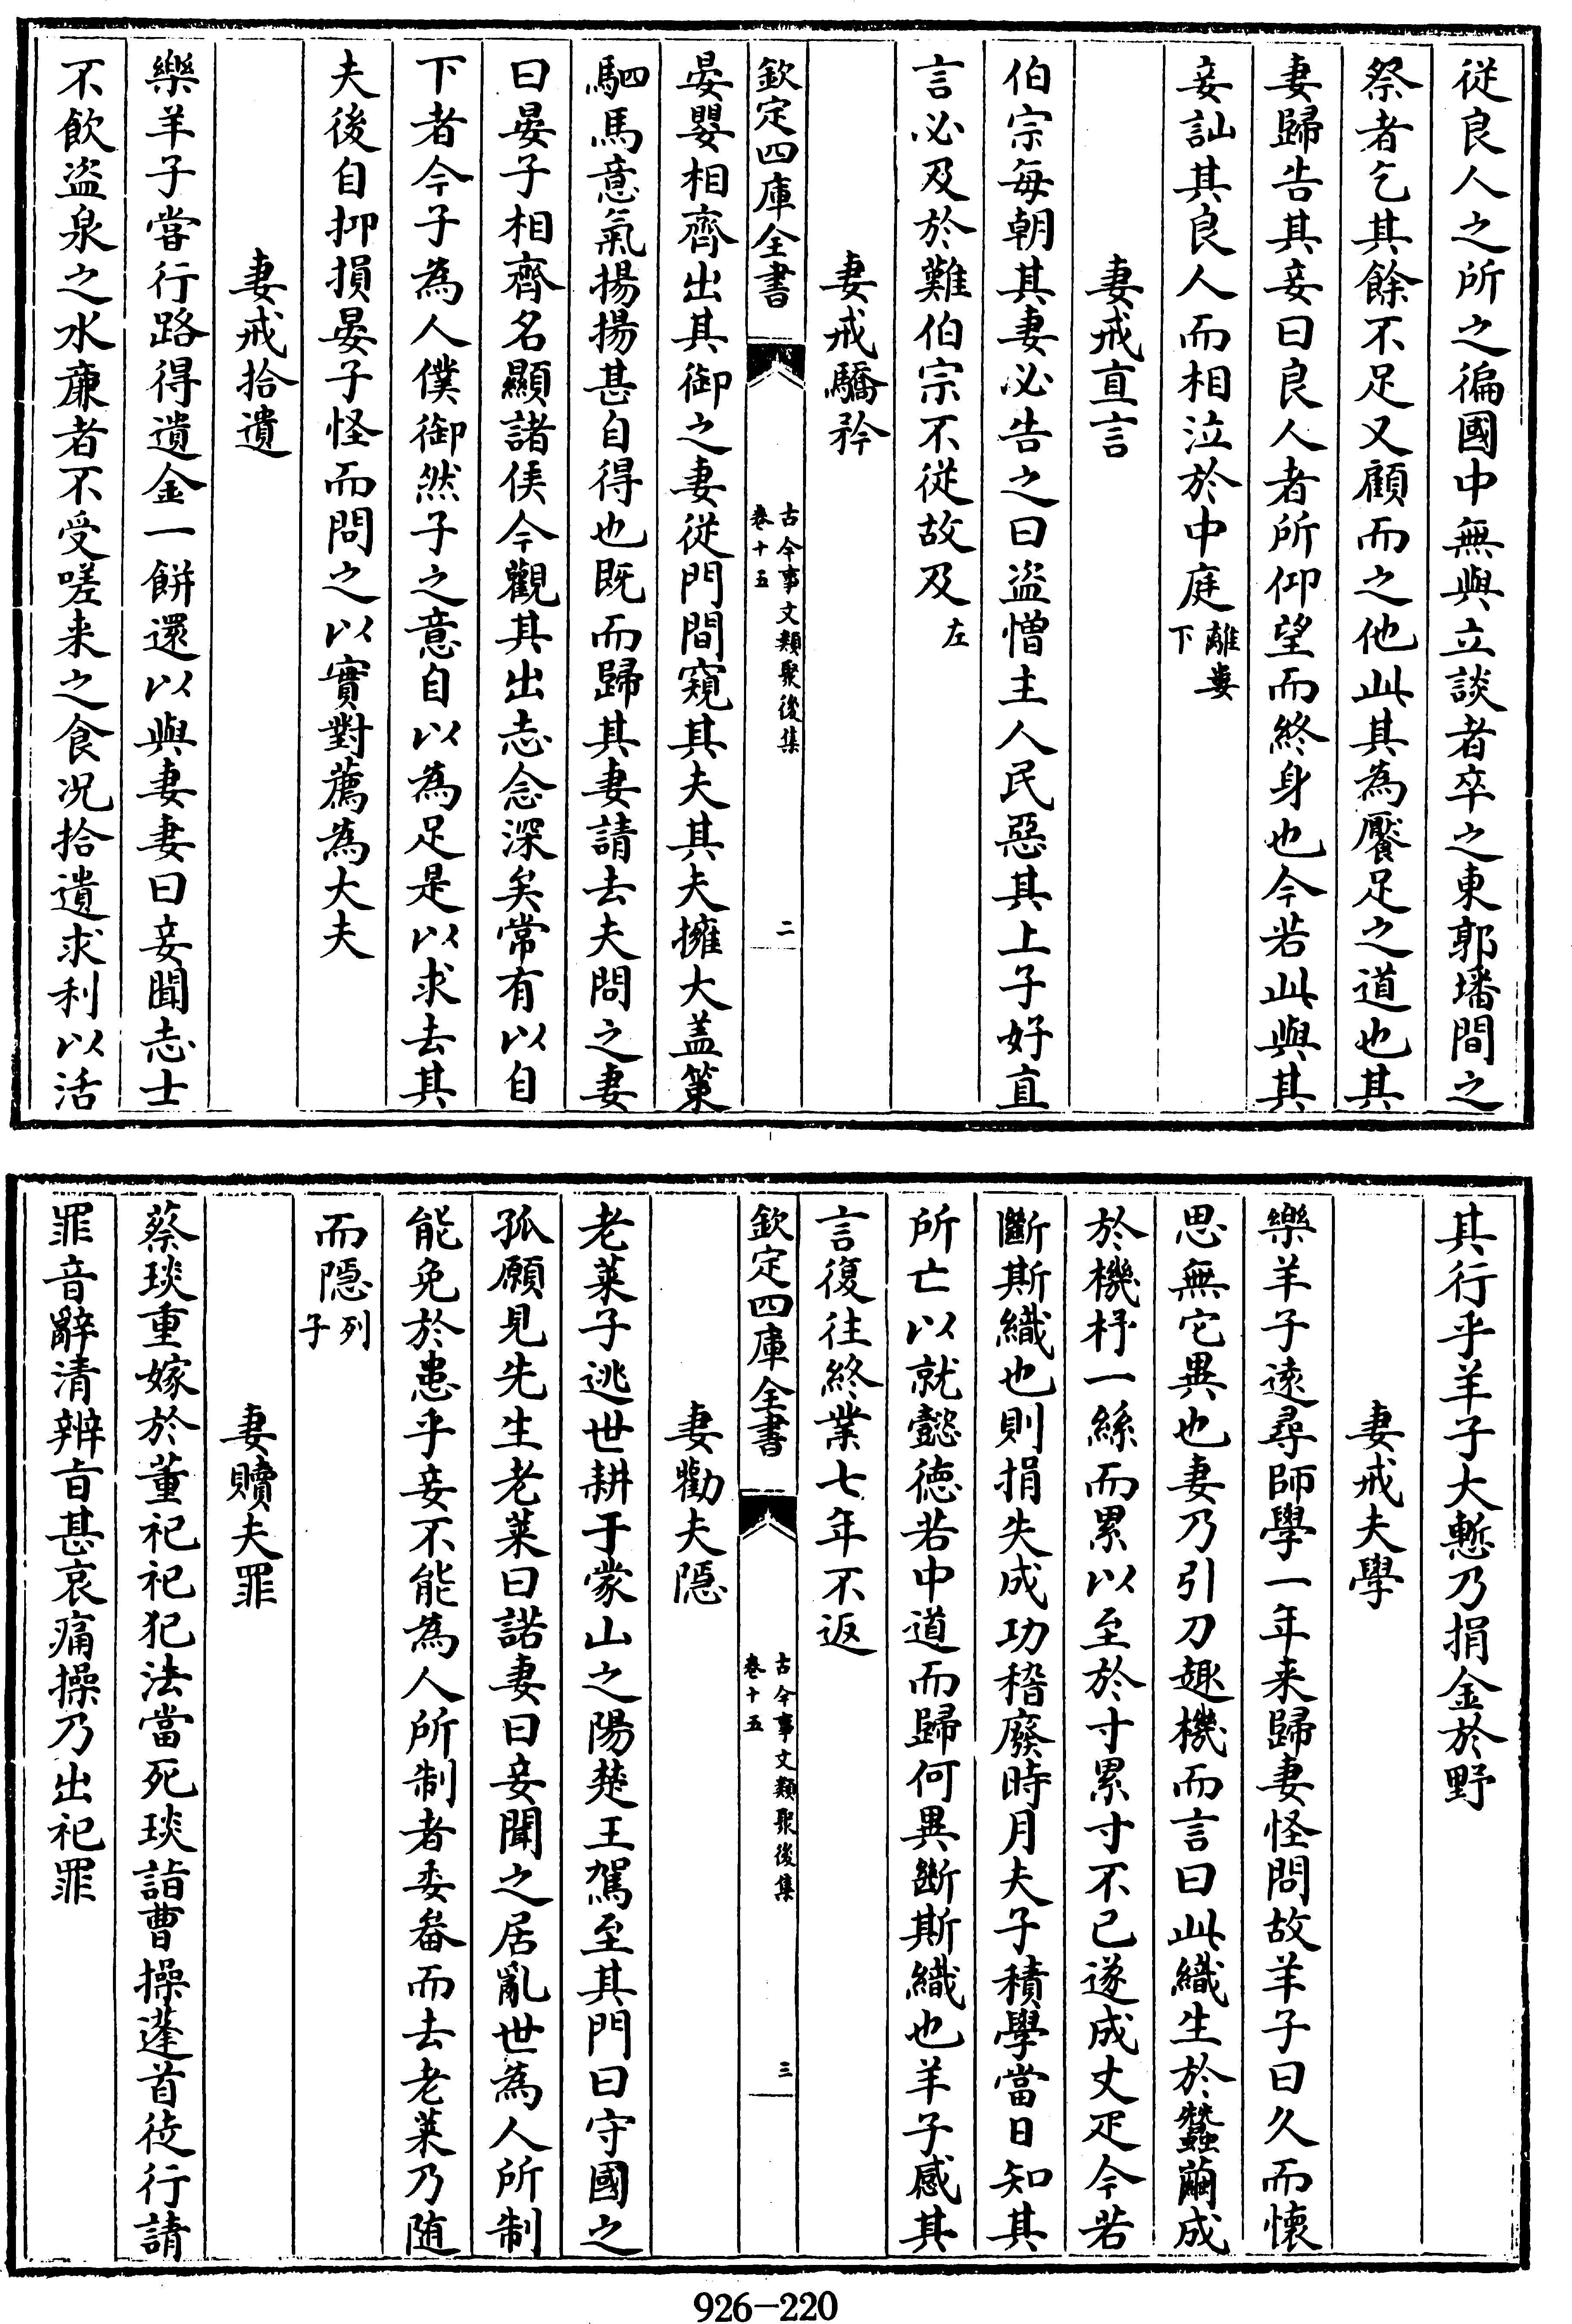 從良人之所之徧國中無與立談者卒之東郭墦間之
祭者乞其餘不足又顧而之他此其為饜足之道也其
妻歸告其妾曰良人者所仰望而終身也今若此與其
妾訕其良人而相泣於中庭離婁下
妻戒直言
伯宗每朝其妻必告之曰盜憎主人民惡其上子好直
言必及於難伯宗不從故及左
妻戒驕矜
欽定四庫全書
古今事文類聚後集
卷十五
二
晏嬰相齊出其御之妻從門間窺其夫其夫擁大盖策
駟馬意氣揚揚甚自得也既而歸其妻請去夫問之妻
曰晏子相齊名顯諸侯今觀其出志念深矣常有以自
下者今子為人僕御然子之意自以為足是以求去其
夫後自抑損晏子怪而問之以實對薦為大夫
妻戒拾遺
樂羊子嘗行路得遺金一餅還以與妻妻曰妾聞志士
不飲盜泉之水亷者不受嗟来之食况拾遺求利以活
其行乎羊子大慙乃捐金於野
妻戒夫學
樂羊子遠尋師學一年来歸妻怪問故羊子曰久而懷
思無它異也妻乃引刀趣機而言曰此織生於蠶繭成
於機杼一絲而累以至於寸累寸不已遂成丈疋今若
斷斯織也則捐失成功稽廢時月夫子積學當日知其
所亡以就懿德若中道而歸何異斷斯織也羊子感其
言復往終業七年不返
欽定四庫全書
古今事文類聚後集
卷十五
三
妻勸夫隱
老莱子逃世耕于蒙山之陽楚王駕至其門曰守國之
孤願見先生老莱曰諾妻曰妾聞之居亂世為人所制
能免於患乎妾不能為人所制者委畚而去老莱乃随
而隱列子
妻贖夫罪
蔡琰重嫁於董祀祀犯法當死琰詣曹操蓬首徒行請
罪音辭清辨旨甚哀痛操乃出祀罪
926-220